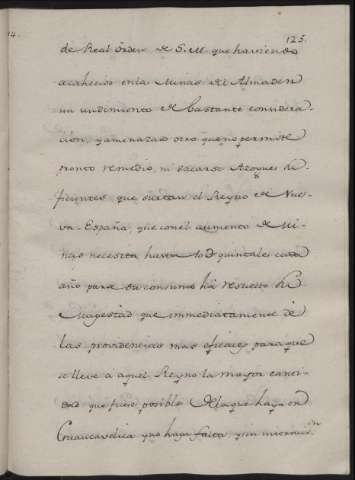 14.
125.
de Real órden de S. M. que haviendo
acahecido en la Minas de Almaden
un undimiento de bastante considera-
ción, y amenazar otro que no permite
pronto remedio, ni sacarse Azogues
que surtan el Reyno de Nue-
va-España, que con el aumento de Mi-
nas necesita hasta quintales cada
año para su consumo há resuelto
Magestad que immediatamente dé
las providencias mas eficaces para que
se lleve a aquel Reyno la mayor canti-
dad que fuese posible de la que haya en
Guancavelica y no haga falta, y sin